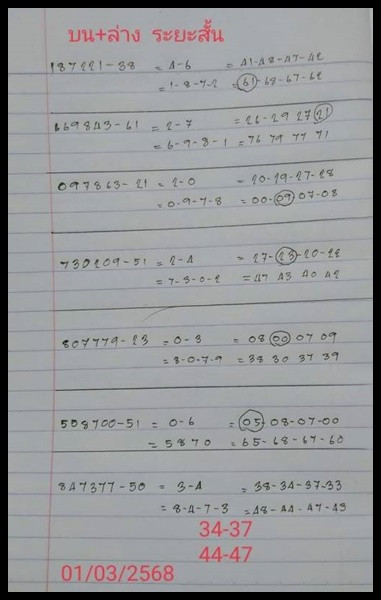 บน+ล่าง ระยะสั้น
187221-38 = 4-6 = 41-48-47-42
= 1-8-7-2 = 61-68-67-62
669843-61 = 2-7 = 26-29 27 21
= 6-9-8-1 = 76 79 77 71
097863-21 = 2-0 = 20-29-27-28
= 0-9-7-8 = 00-09 07-08
730209-51 = 2-4 = 27-23-20-22
= 7-3-0-2 = 47 43 40 42
807779-23 = 0-3 = 08 00 07 09
= 8-0-7-9 = 38 30 37 39
508700-51 = 0-6 = 05-08-07-00
= 5870 = 65-68-67-60
847377-50 = 3-4 = 38-34-37-33
= 8-4-7-3 = 48-44-47-43
34-37
44-47
01/03/2568